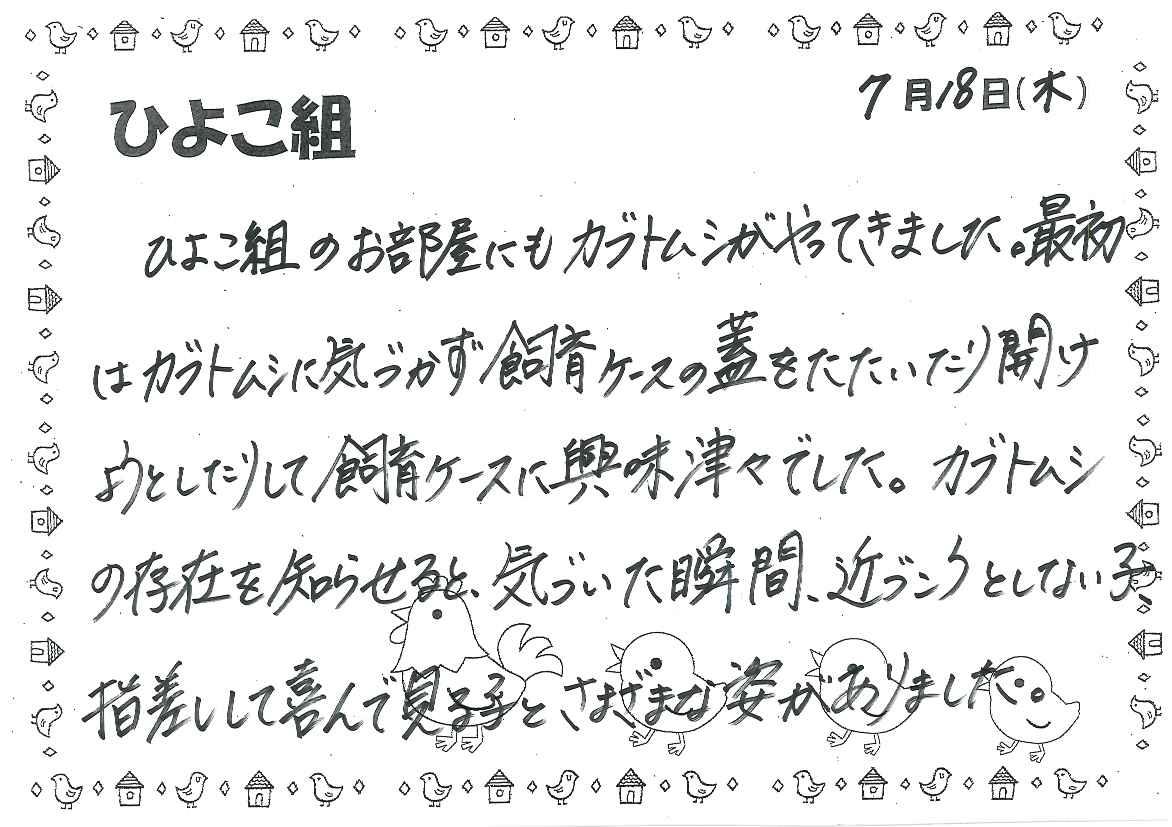 7月18日(木)
ひよこ組
ひよこ組のお部屋にもカブトムシがやってきました。最初
はカブトムシに気づかず飼育ケースの蓋をたたいたり開け
ようとしたりして飼育ケースに興味津々でした。カブトムシ
の存在を知らせると、気づいた瞬間、近づこうとしない子、
指差しして喜んで見る子とさまざまな姿がありました